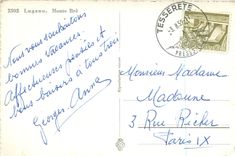 3203 Lugano. Monte Brè
Nous vous souhaitons
bonnes vacances.
Affectueuses pensées et
bons baisers à tous trois
Georges Anna
TESSERETE
Monsieur Madame
3 Rue Richer
Paris IX